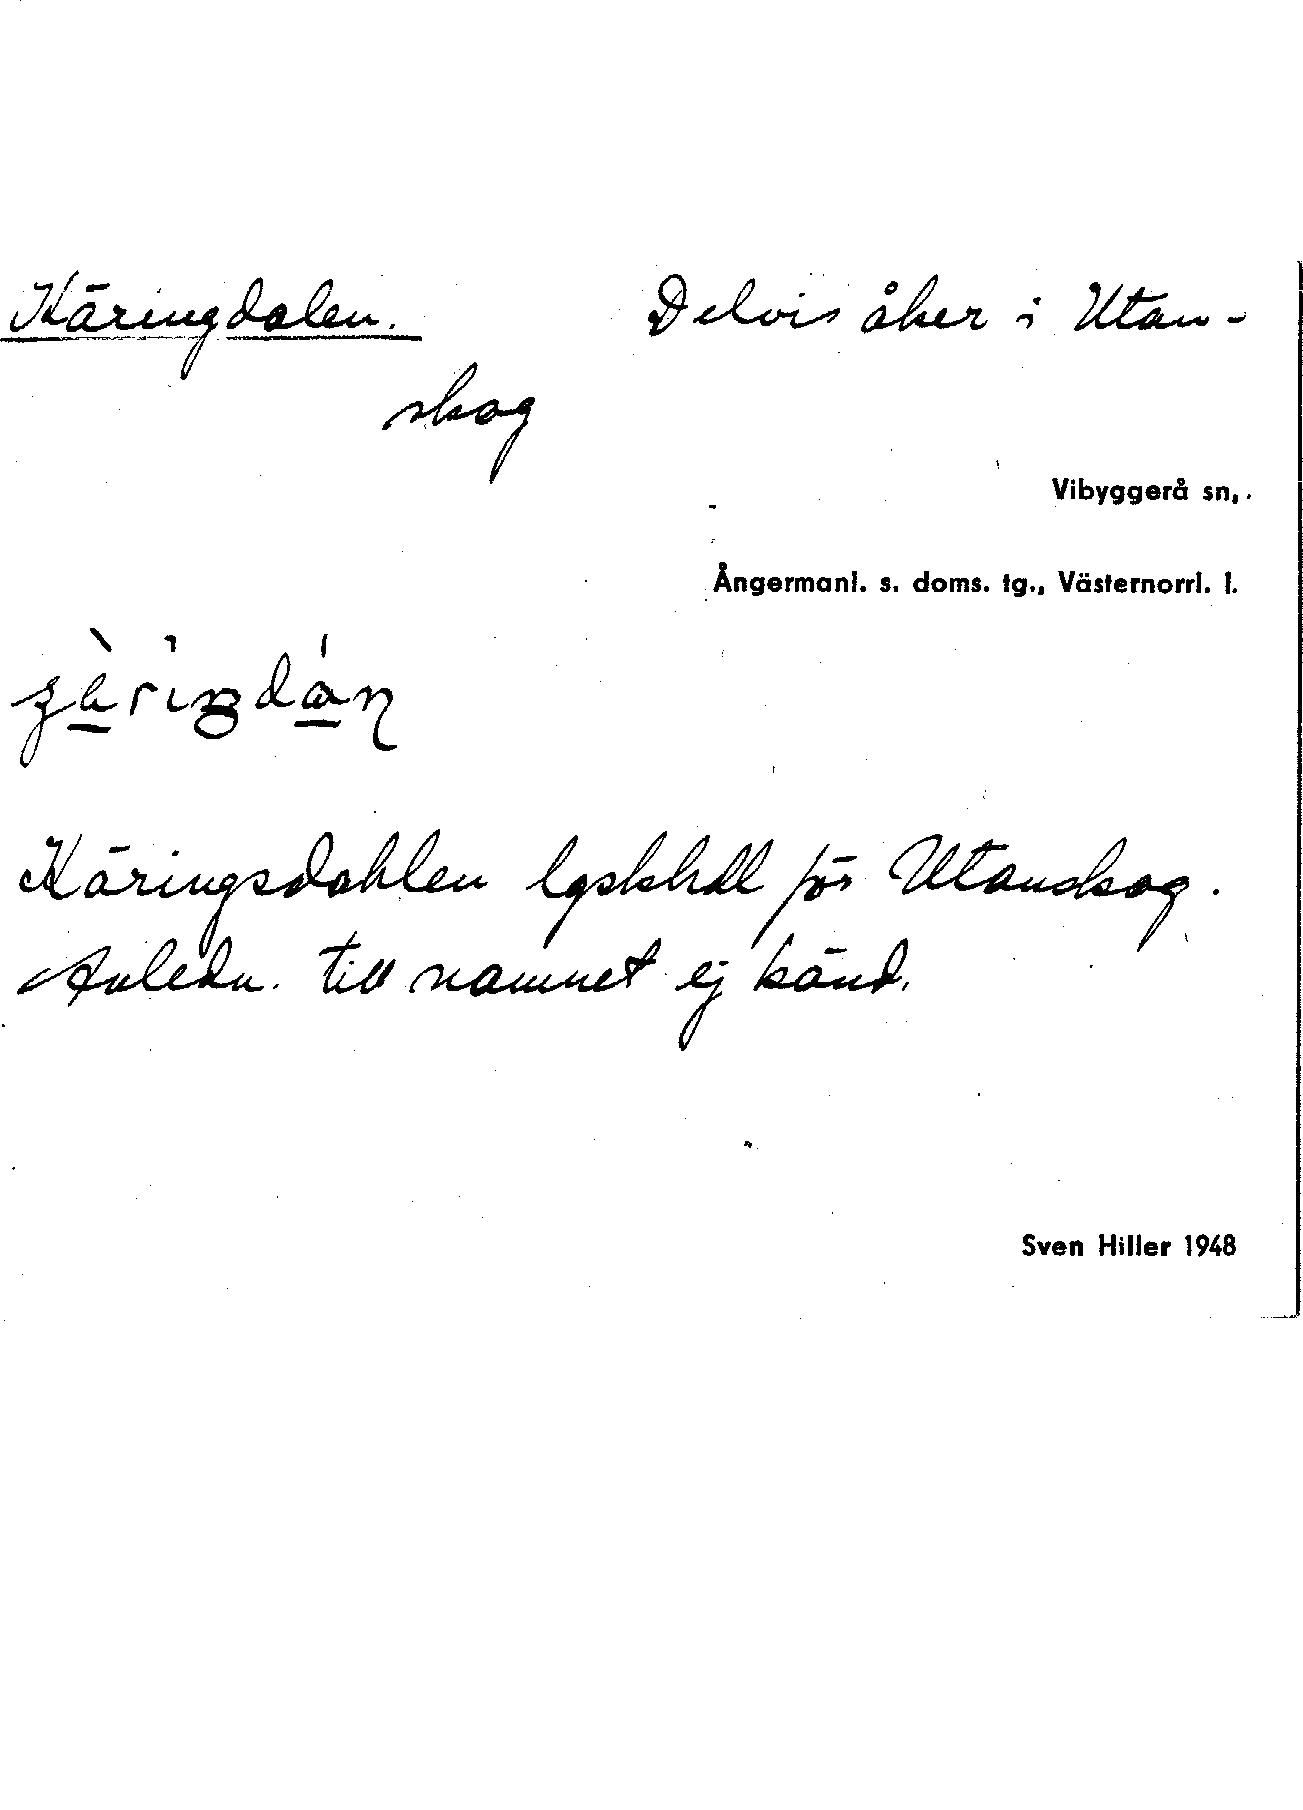 Käringdalen. Delvis åker i Utan-
skog
Vibyggerå sn,.
Ångermanl. s. doms. tg., Västernorrl. l.
Käringsdahlen lgskhdl för Utanskog.
Anledn. till namnet ej känd.
Sven Hiller 1948